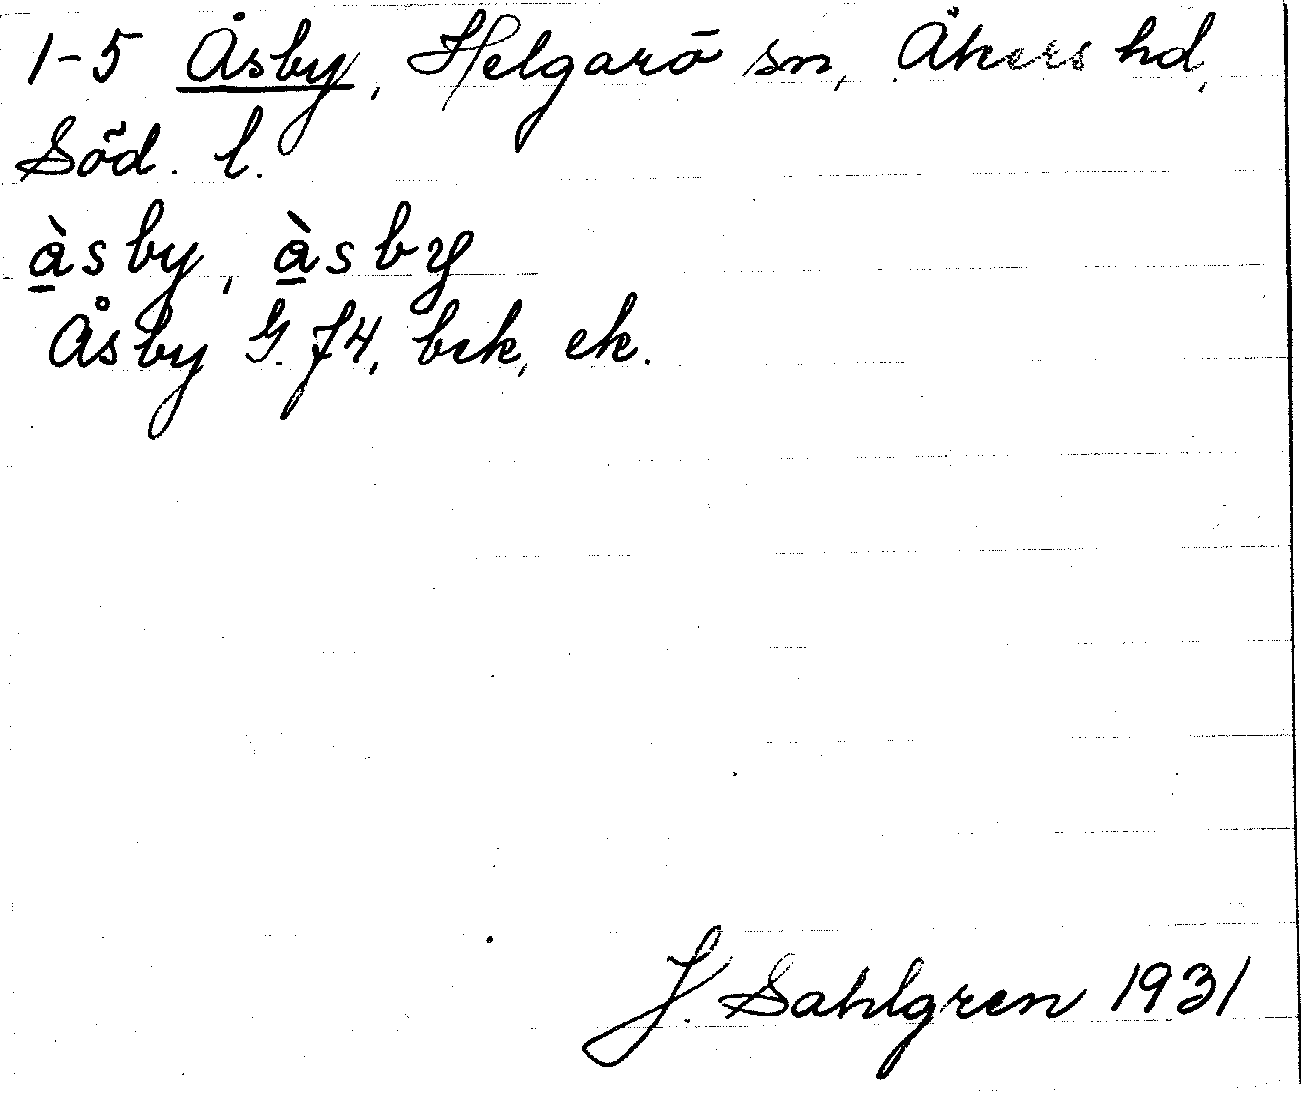 1-5 Åsby, Helgarö sn, Åkers hd,
Söd. l.
à̲sby, à̲sby
Åsby G. J4, bek, ek.
J. Sahlgren 1931